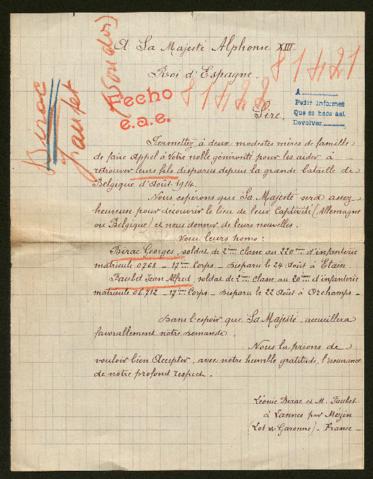 A Sa Majesté Alphonse XIII
Roi d'Espagne.
81421
81422
Birac
Jaubet
(Soudor)
Fecho
e.a.e.
A
Pedir informes
Que se hace así
Devolver
Sire,
Permettez à deux modestes mères de famille
de faire appel à Votre noble générosité pour les aider à
retrouver leurs fils disparus depuis la grande bataille de
Belgique d'Août 1914.
Nous espérons que Sa Majesté sera assez
heureuse pour découvrir le lieu de leur captivité (Allemagne
ou Belgique) et nous donner de leurs nouvelles.
Voici leurs noms:
Birac Georges, soldat de 2ème classe au 220ème d'infanterie
matricule 0768 - 17ème Corps - disparu le 24 Août à Etain
Jaubet Jean Alfred soldat de 2ème classe au 20ème d'infanterie
matricule 06.712 - 17ème Corps - disparu le 22 Août à Orchamps -
Dans l'espoir que Sa Majesté, accueillera
favorablement notre demande.
Nous la prions de
vouloir bien Accepter, avec notre humble gratitude, l'assurance
de notre profond respect.
Léonie Birac et M. Jaubet
à Lannes par Mézin
(Lot et Garonne). France -